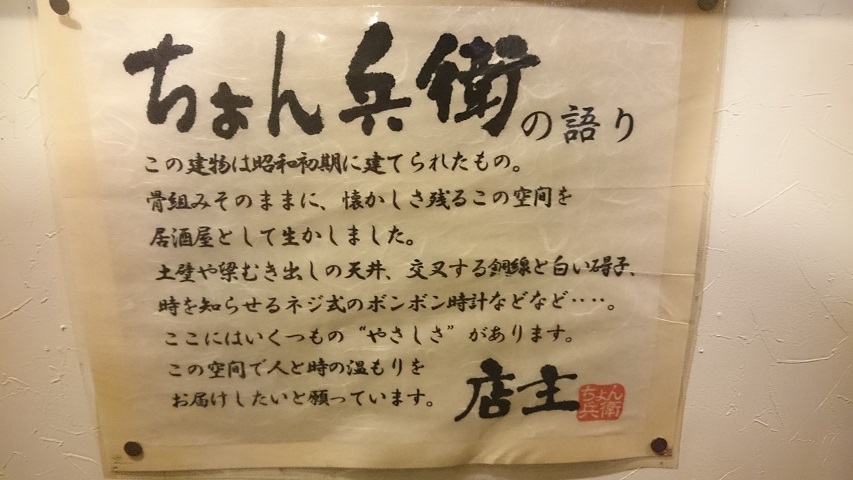 ちょん兵衛の語り
この建物は昭和初期に建てられたもの。
骨組みそのままに、懐かしさ残るこの空间を
居酒屋として生かしました。
土壁や梁むき出しの天井、交叉する銅線と白い碍子、
時を知らせるネジ式のボンボン時計などなど‥‥。
ここにはいくつもの“やさしさ”があります。
この空间で人と時の温もりを
お届けしたいと願っています。
店主
ちょん
兵衛